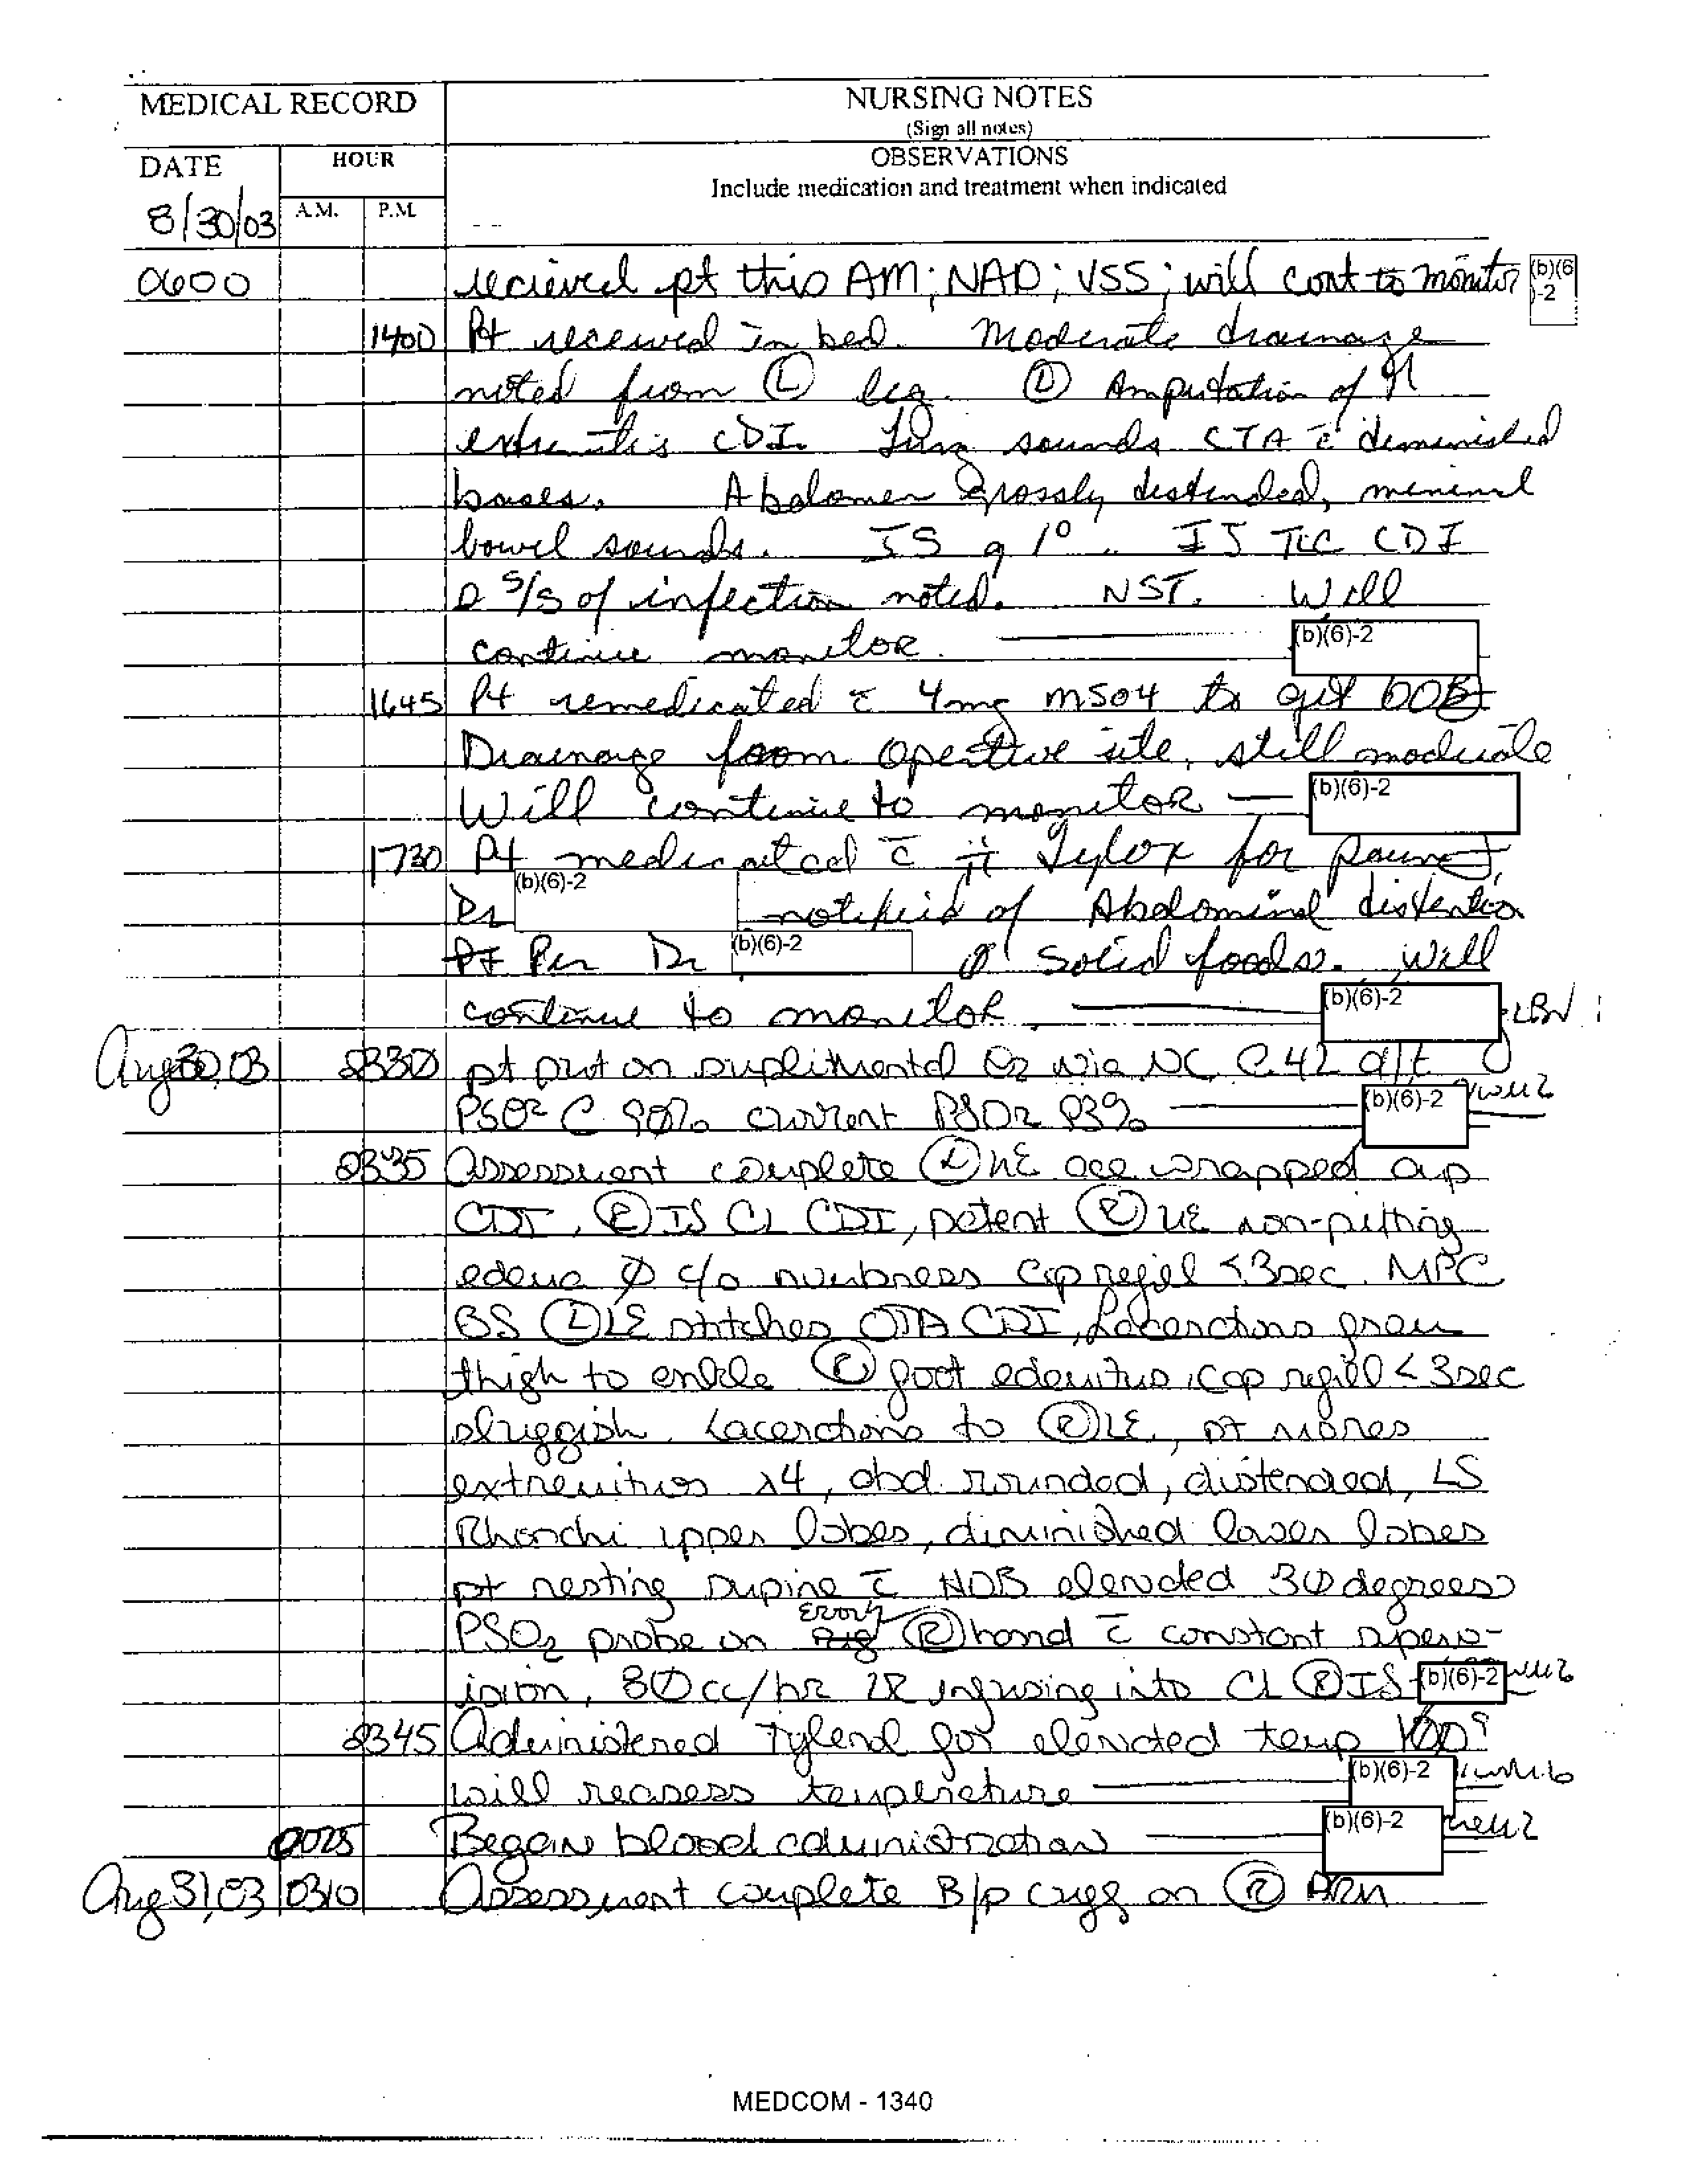 MEDICAL RECORD
NURSING NOTES
(Sign all notes)
DATE
HOUR
OBSERVATIONS
Include medication and treatment when indicated
8/30/03
A.M.
P.M.
0600 recieved pt this AM; NAD; VSS; will cont to monitor (b)(6)-2
1400 Pt received in bed. Moderate drainage
noted from Ⓛ leg. Ⓛ Amputation of
extremitis CDI. Lung sounds CTA c̄ deminished
bases. Abdomen grossly distended, minimal
bowel sounds. IS q 1° . IJ TLC CDI
s/s of infection noted. NST. Will
continue monitor. (b)(6)-2
1645 Pt remedicated c̄ 4mg MSO4 to get OOB
Drainage from opertive site, still moderate
Will continue to monitor (b)(6)-2
1730 Pt medicated c̄ ii Tylox for pain,
Dr (b)(6)-2 notifeid of Abdominal distention
Pt Per Dr (b)(6)-2 Ø solid foods. Will
continue to monitor. (b)(6)-2
Aug 30, 03 2330 pt put on suplimental O2 via NC @ 4L d/t
PSO2 @ 90% current PSO2 93% (b)(6)-2
2335 Assessment complete Ⓛ UE ace wrapped
CDI, Ⓡ IJ CL CDI, patent Ⓡ UE non-pitting
edema Ø c/o numbness cap refill < 3sec. MPC
BS Ⓛ LE stitches OTA CDI, Lacerations from
thigh to ankle Ⓡ foot edemitus, cap refill < 3sec
sluggish. Lacerations to Ⓡ LE, pt moves
extremities x4, abd rounded, distended, LS
Rhonchi upper lobes, diminished lower lobes
pt resting supine c̄ HOB elevated 30 degrees
PSO2 probe on Error Ⓡ hand c̄ constant superv-
ision, 80cc/hr LR infusing into CL Ⓡ IJ (b)(6)-2
2345 Administered tylenol for elevated temp 100°
will reassess temperature (b)(6)-2
0025 Began blood administration (b)(6)-2
Aug 31, 03 0310 Assessment complete B/p cuff on Ⓡ ARM
MEDCOM - 1340